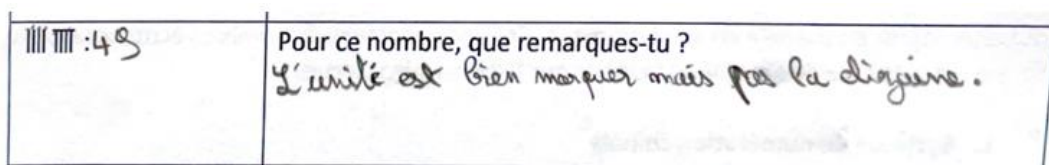 :49
Pour ce nombre, que remarques-tu ?
L'unité est bien marquer mais pas la dizaine.